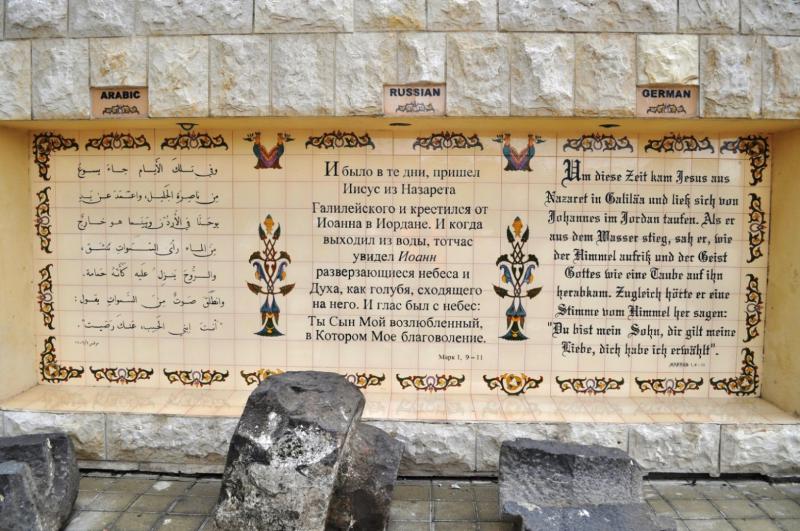 ARABIC
وفي تلك الأيام جاء يسوع
من ناصرة الجليل، واعتمد عن يد
يوحنا في الأردن وبينما هو خارج
من الماء رأى السموات تنشق،
والروح ينزل عليه كأنه حمامة.
وانطلق صوت من السموات يقول:
"أنت ابني الحبيب، عنك رضيت".
RUSSIAN
И было в те дни, пришел
Иисус из Назарета
Галилейского и крестился от
Иоанна в Иордане. И когда
выходил из воды, тотчас
увидел Иоанн
разверзающиеся небеса и
Духа, как голубя, сходящего
на него. И глас был с небес:
Ты Сын Мой возлюбленный,
в Котором Мое благоволение.
Марк 1, 9 – 11
GERMAN
Um diese Zeit kam Jesus aus
Nazaret in Galiläa und ließ sich von
Johannes im Jordan taufen. Als er
aus dem Wasser stieg, sah er, wie
der Himmel aufriß und der Geist
Gottes wie eine Taube auf ihn
herabkam. Zugleich hötte er eine
Stimme vom Himmel her sagen:
"Du bist mein Sohn, dir gilt meine
Liebe, dich habe ich erwählt".